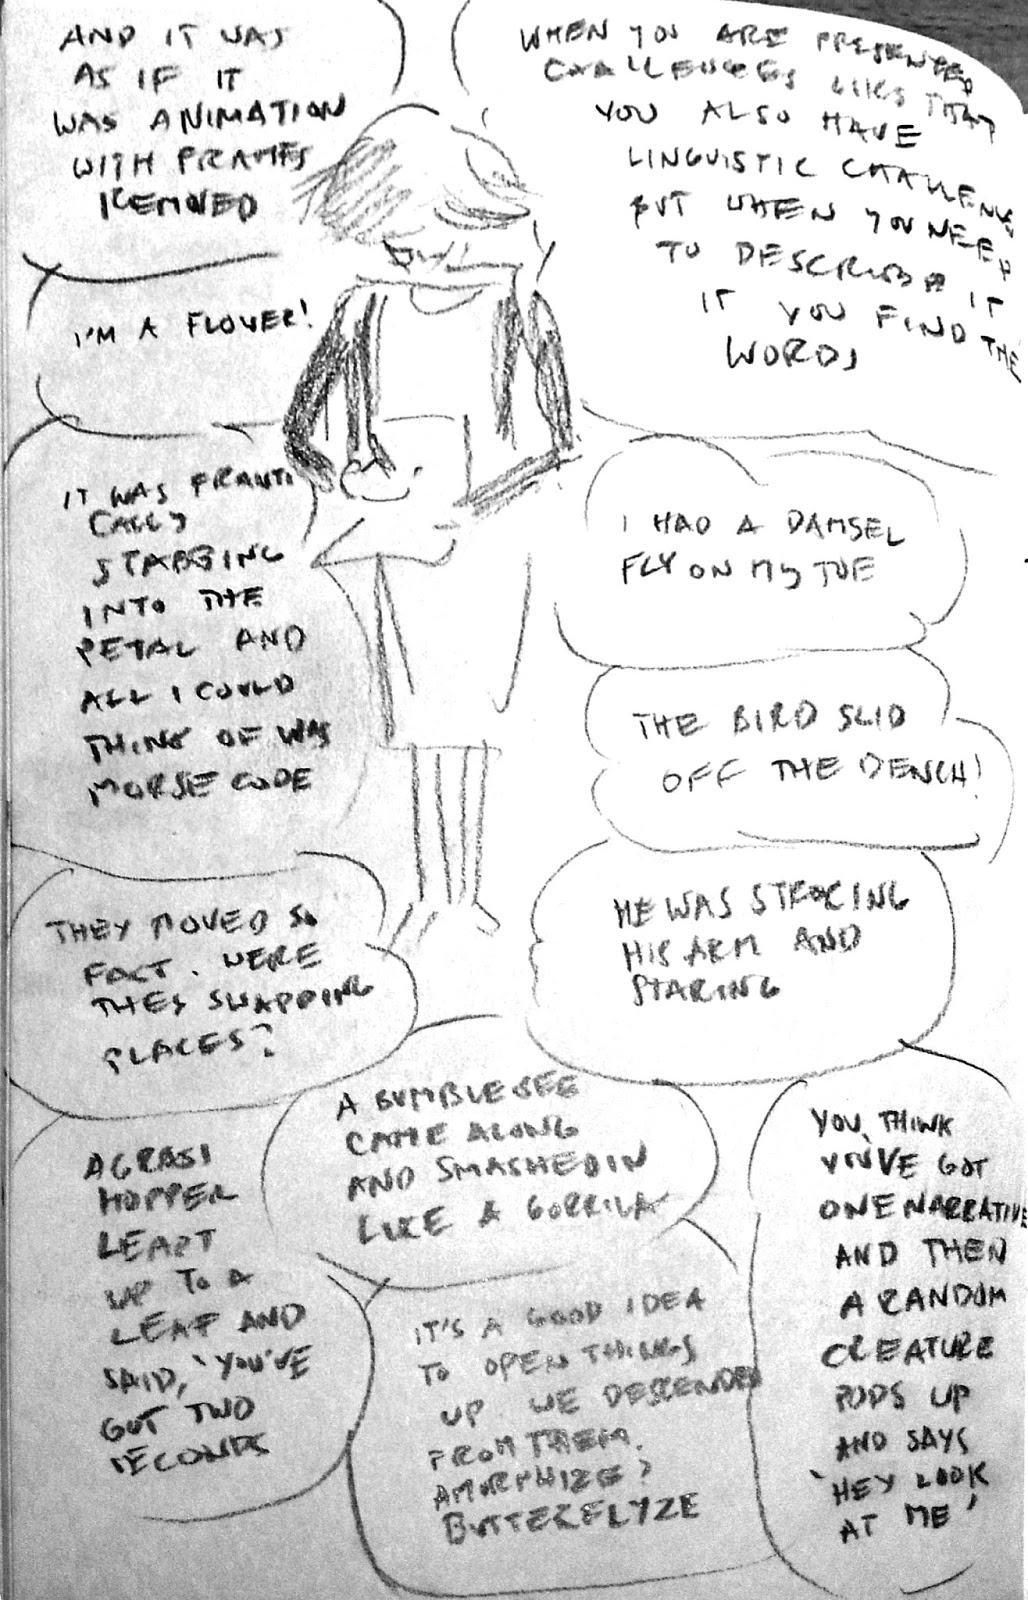 AND IT WAS
AS IF IT
WAS ANIMATION
WITH FRAMES
REMOVED
WHEN YOU ARE PRESENTED
CHALLENGES LIKE THAT
YOU ALSO HAVE
LINGUISTIC CHALLENGES
BUT WHEN YOU NEED
TO DESCRIBE IT
IT YOU FIND THE
WORDS
I'M A FLOWER!
IT WAS FRANTI
CALLY
STABBING
INTO THE
PETAL AND
ALL I COULD
THINK OF WAS
MORSE CODE
I HAD A DAMSEL
FLY ON MY TOE
THE BIRD SLID
OFF THE BENCH!
HE WAS STROKING
HIS ARM AND
STARING
THEY MOVED SO
FAST. WERE
THEY SWAPPING
PLACES?
A BUMBLEBEE
CAME ALONG
AND SMASHED IN
LIKE A GORRILA
A GRASS
HOPPER
LEAPT
UP TO A
LEAF AND
SAID, 'YOU'VE
GOT TWO
SECONDS
IT'S A GOOD IDEA
TO OPEN THINGS
UP WE DESCENDED
FROM THEM.
AMORPHIZE?
BUTTERFLYZE
YOU THINK
YOU'VE GOT
ONE NARRATIVE
AND THEN
A RANDOM
CREATURE
POPS UP
AND SAYS
'HEY LOOK
AT ME'